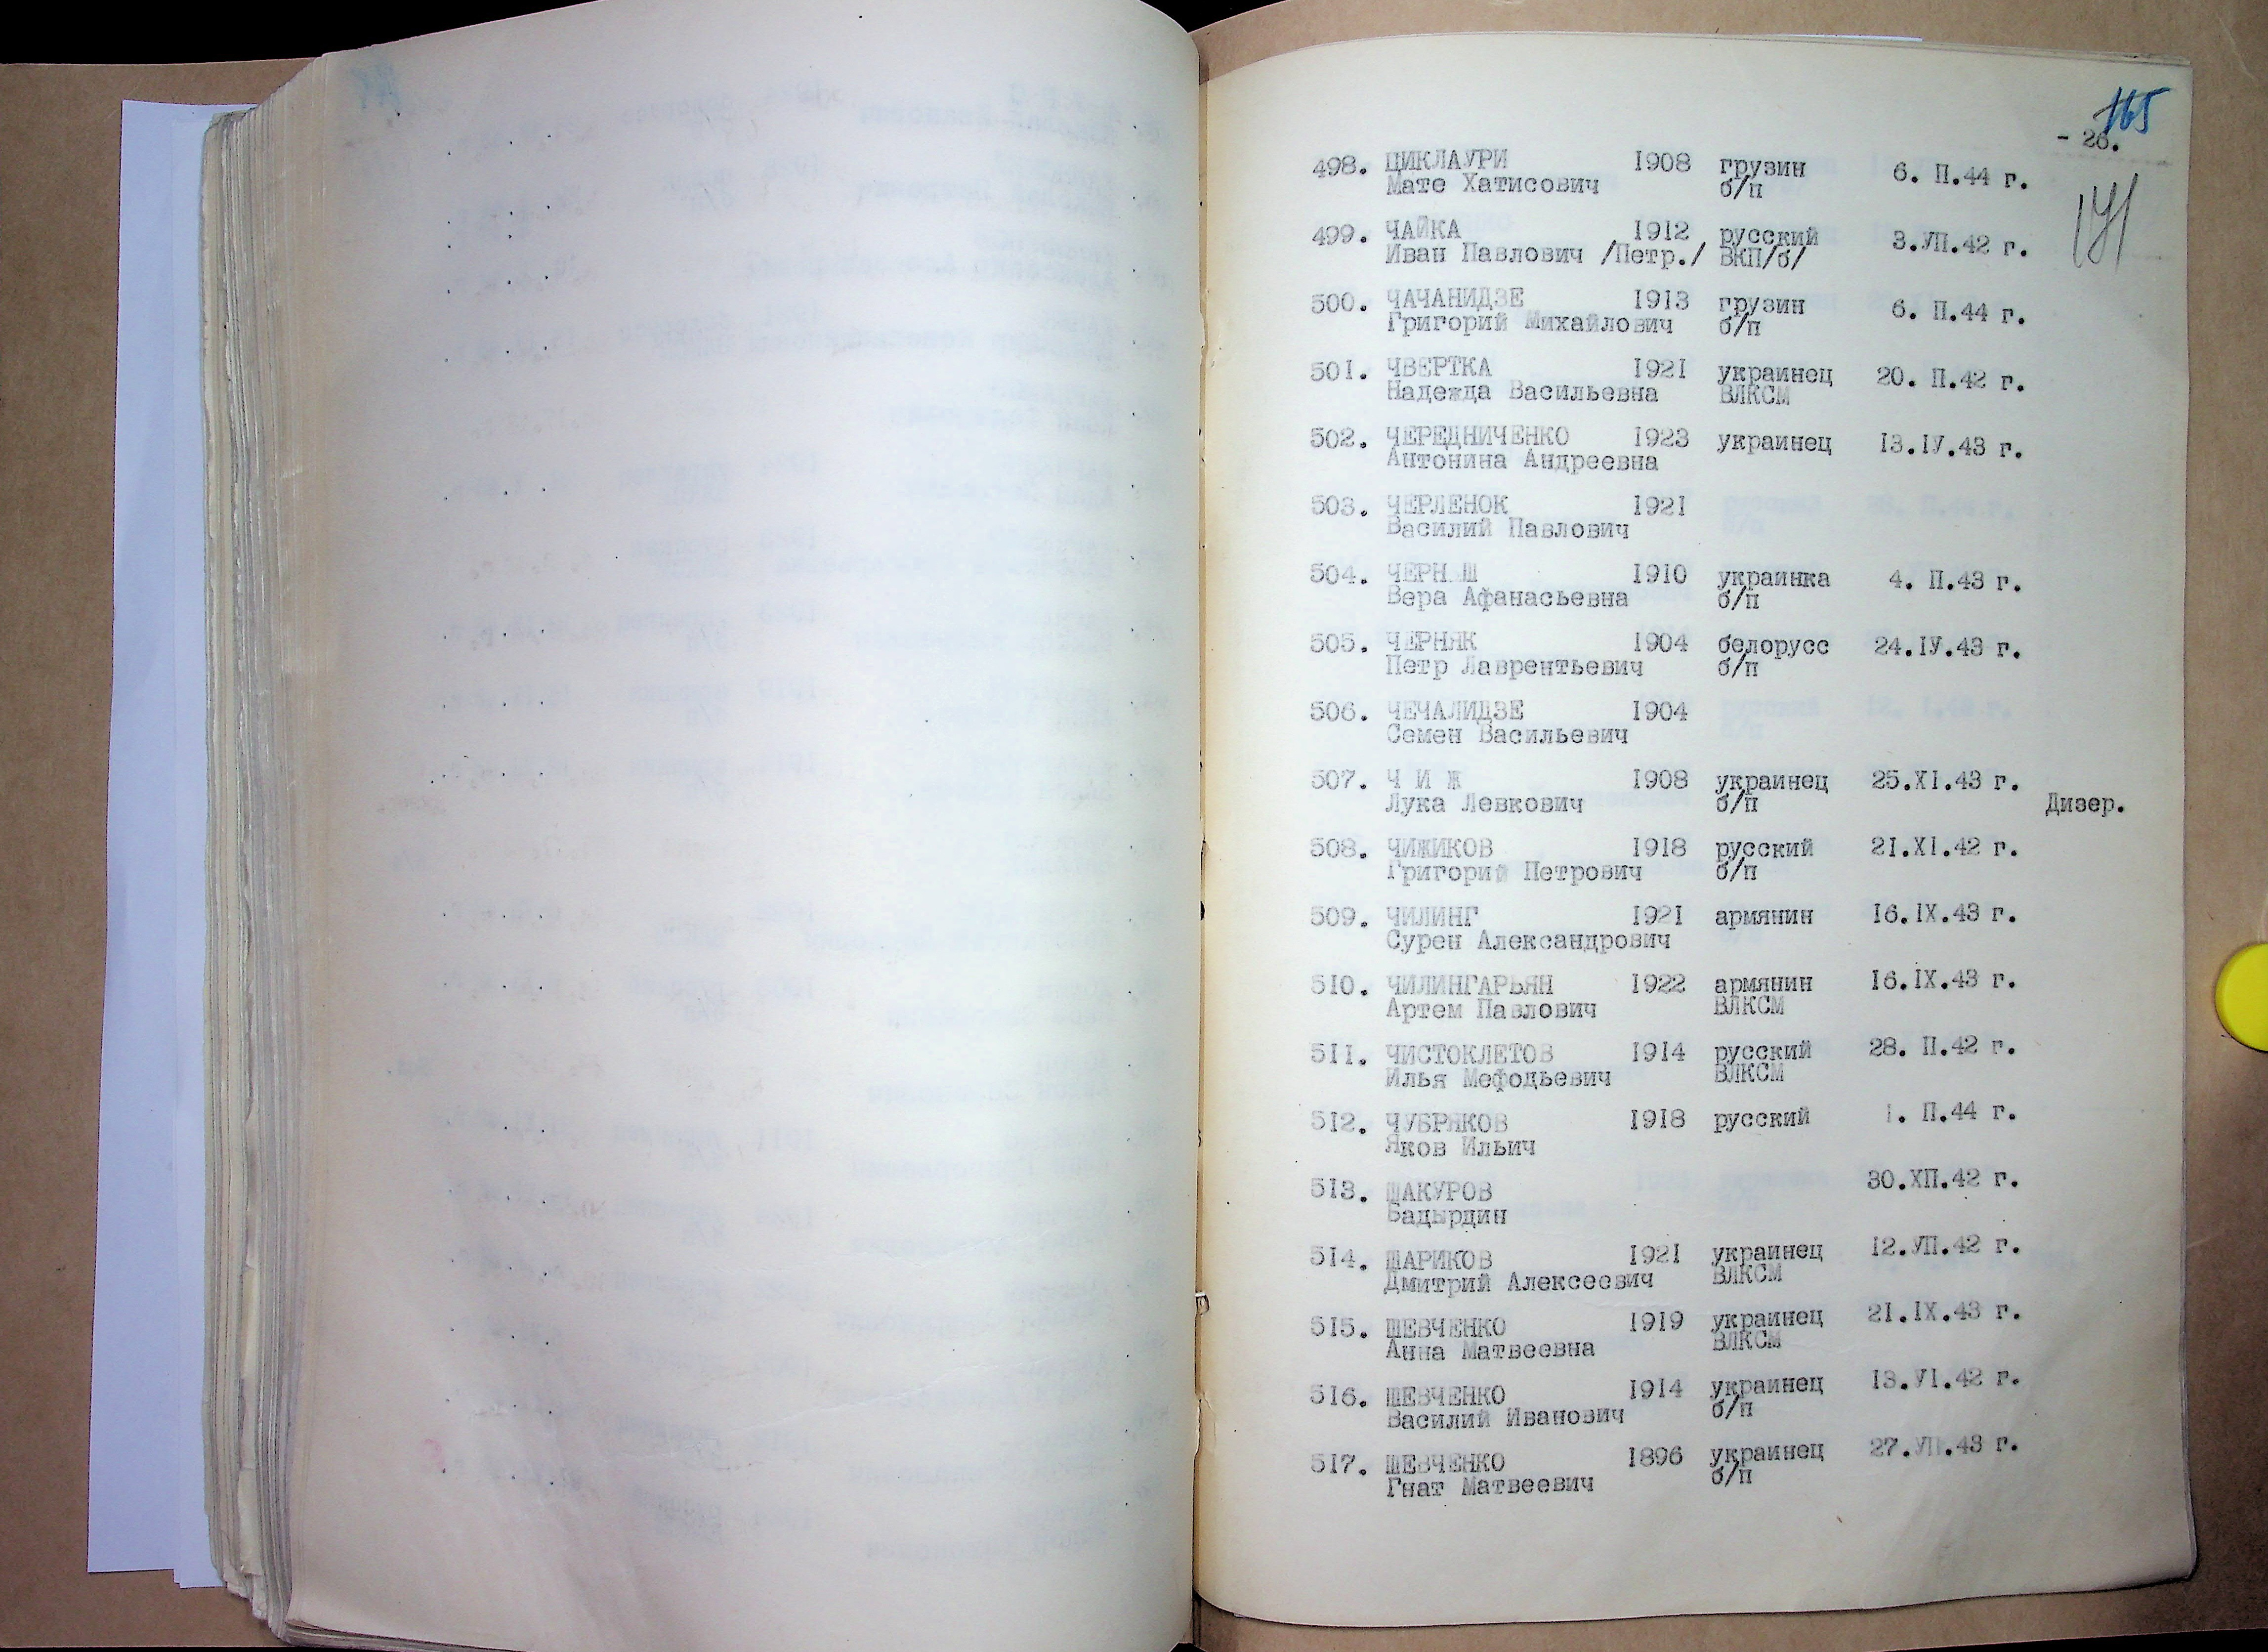 165
- 26.
141
498. ЦИКЛАУРИ 1908 грузин 6. П.44 г.
Мате Хатисович б/п
499. ЧАЙКА 1912 русский 3.УП.42 г.
Иван Павлович /Петр./ ВКП/б/
500. ЧАЧАНИДЗЕ 1913 грузин 6. П.44 г.
Григорий Михайлович б/п
501. ЧВЕРТКА 1921 украинец 20. П.42 г.
Надежда Васильевна ВЛКСМ
502. ЧЕРЕДНИЧЕНКО 1923 украинец 13.ІУ.43 г.
Антонина Андреевна
503. ЧЕРЛЕНОК 1921
Василий Павлович
504. ЧЕРН Ш 1910 украинка 4. П.43 г.
Вера Афанасьевна б/п
505. ЧЕРНЯК 1904 белорусс 24.ІУ.43 г.
Петр Лаврентьевич б/п
506. ЧЕЧАЛИДЗЕ 1904
Семен Васильевич
507. Ч И Ж 1908 украинец 25.ХІ.43 г.
Лука Левкович б/п Дизер.
508. ЧИЖИКОВ 1918 русский 21.ХІ.42 г.
Григорий Петрович б/п
509. ЧИЛИНГ 1921 армянин 16.ІХ.43 г.
Сурен Александрович
510. ЧИЛИНГАРЬЯН 1922 армянин 16.ІХ.43 г.
Артем Павлович ВЛКСМ
511. ЧИСТОКЛЕТОВ 1914 русский 28. П.42 г.
Илья Мефодьевич ВЛКСМ
512. ЧУБРЯКОВ 1918 русский 1. П.44 г.
Яков Ильич
513. ШАКУРОВ 30.ХП.42 г.
Бадырдин
514. ШАРИКОВ 1921 украинец 12.УП.42 г.
Дмитрий Алексеевич ВЛКСМ
515. ШЕВЧЕНКО 1919 украинец 21.ІХ.43 г.
Анна Матвеевна ВЛКСМ
516. ШЕВЧЕНКО 1914 украинец 13.УІ.42 г.
Василий Иванович б/п
517. ШЕВЧЕНКО 1896 украинец 27.УП.43 г.
Гнат Матвеевич б/п